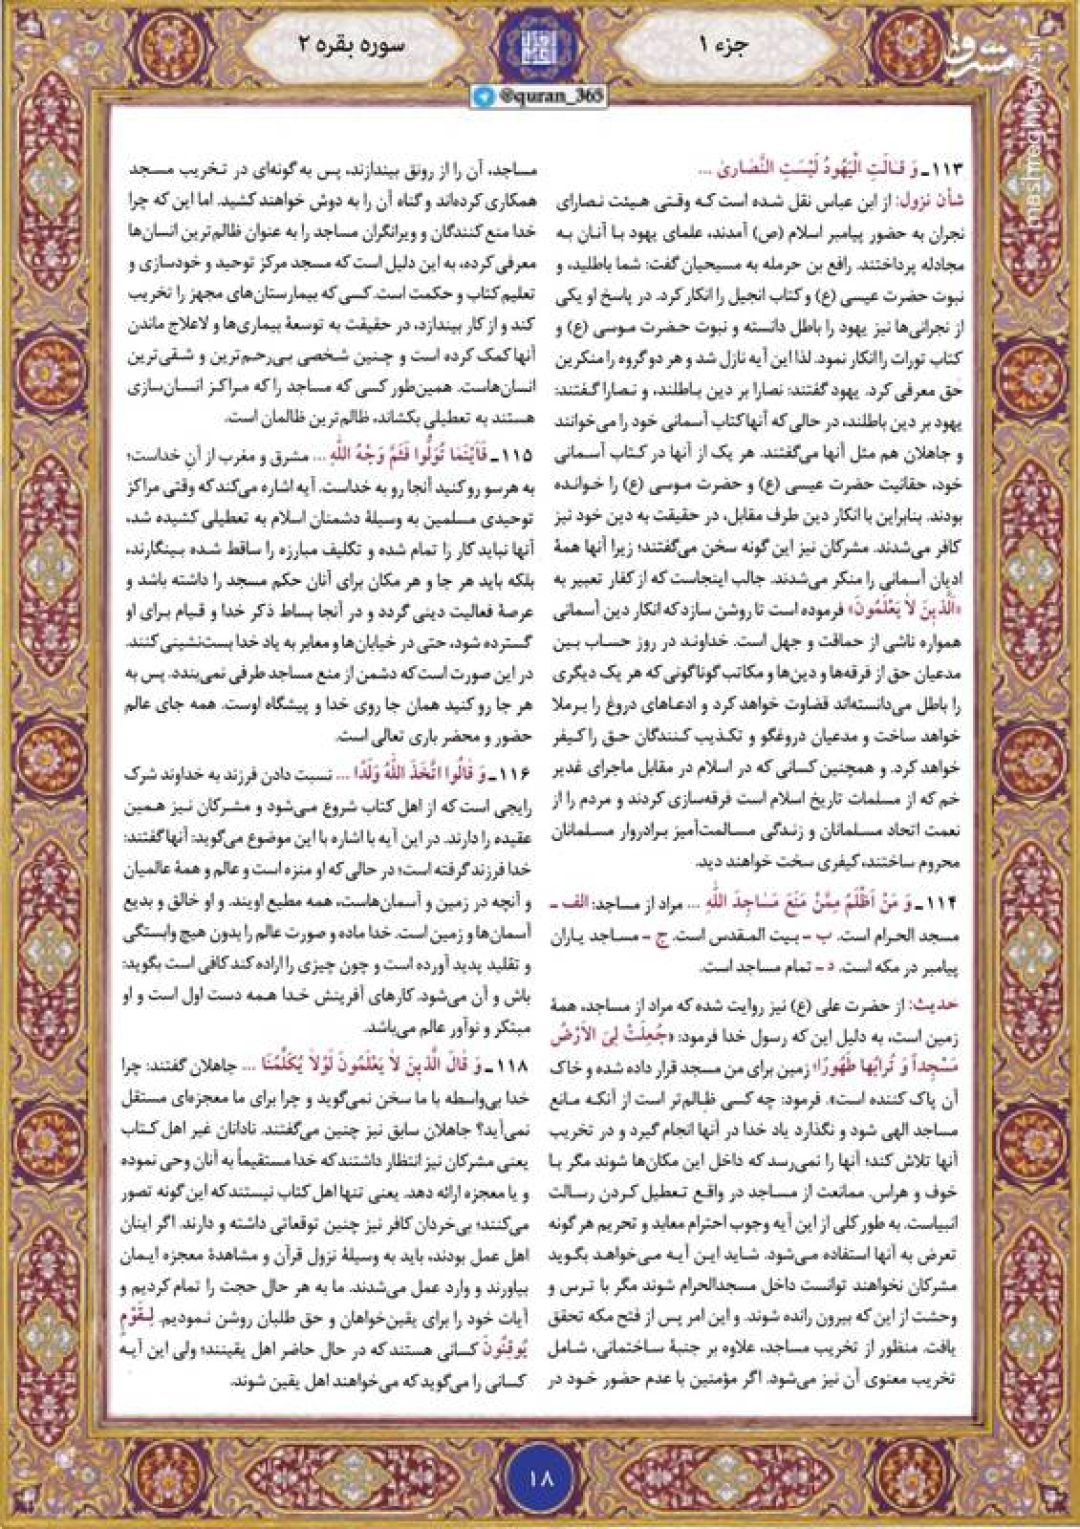 جزء ۱
سوره بقره ۲
مشرق
mashreghnews.ir
@quran_365
۱۱۳ـ وَ قَالَتِ الْيَهُودُ لَيْسَتِ النَّصَارىٰ ...
شأن نزول: از ابن عباس نقل شده است که وقتی هیئت نصارای
نجران به حضور پیامبر اسلام (ص) آمدند، علمای یهود با آنان به
مجادله پرداختند. رافع بن حرمله به مسیحیان گفت: شما باطلید، و
نبوت حضرت عیسی (ع) و کتاب انجیل را انکار کرد. در پاسخ او یکی
از نجرانی‌ها نیز یهود را باطل دانسته و نبوت حضرت موسی (ع) و
کتاب تورات را انکار نمود. لذا این آیه نازل شد و هر دو گروه را منکرین
حق معرفی کرد. یهود گفتند: نصارا بر دین باطلند، و نصارا گفتند:
یهود بر دین باطلند، در حالی که آنها کتاب آسمانی خود را می‌خوانند
و جاهلان هم مثل آنها می‌گفتند. هر یک از آنها در کتاب آسمانی
خود، حقانیت حضرت عیسی (ع) و حضرت موسی (ع) را خوانده
بودند. بنابراین با انکار دین طرف مقابل، در حقیقت به دین خود نیز
کافر می‌شدند. مشرکان نیز این گونه سخن می‌گفتند؛ زیرا آنها همهٔ
ادیان آسمانی را منکر می‌شدند. جالب اینجاست که از کفار تعبیر به
«اَلَّذينَ لاٰ يَعْلَمُونَ» فرموده است تا روشن سازد که انکار دین آسمانی
همواره ناشی از حماقت و جهل است. خداوند در روز حساب بین
مدعیان حق از فرقه‌ها و دین‌ها و مکاتب گوناگونی که هر یک دیگری
را باطل می‌دانسته‌اند قضاوت خواهد کرد و ادعاهای دروغ را برملا
خواهد ساخت و مدعیان دروغگو و تکذیب کنندگان حق را کیفر
خواهد کرد. و همچنین کسانی که در اسلام در مقابل ماجرای غدیر
خم که از مسلمات تاریخ اسلام است فرقه‌سازی کردند و مردم را از
نعمت اتحاد مسلمانان و زندگی مسالمت‌آمیز برادروار مسلمانان
محروم ساختند، کیفری سخت خواهند دید.
۱۱۴ـ وَ مَنْ اَظْلَمُ مِمَّنْ مَنَعَ مَسَاجِدَ اللّٰهِ ... مراد از مساجد: الف ـ
مسجد الحرام است. ب ـ بیت المقدس است. ج ـ مساجد یاران
پیامبر در مکه است. د ـ تمام مساجد است.
حدیث: از حضرت علی (ع) نیز روایت شده که مراد از مساجد، همهٔ
زمین است، به دلیل این که رسول خدا فرمود: «جُعِلَتْ لِیَ الاَرْضُ
مَسْجِداً وَ تُرابُها طَهُورًا؛ زمین برای من مسجد قرار داده شده و خاک
آن پاک کننده است». فرمود: چه کسی ظالم‌تر است از آنکه مانع
مساجد الهی شود و نگذارد یاد خدا در آنها انجام گیرد و در تخریب
آنها تلاش کند؛ آنها را نمی‌رسد که داخل این مکان‌ها شوند مگر با
خوف و هراس. ممانعت از مساجد در واقع تعطیل کردن رسالت
انبیاست. به طور کلی از این آیه وجوب احترام معابد و تحریم هر گونه
تعرض به آنها استفاده می‌شود. شاید این آیه می‌خواهد بگوید
مشرکان نخواهند توانست داخل مسجدالحرام شوند مگر با ترس و
وحشت از این که بیرون رانده شوند. و این امر پس از فتح مکه تحقق
یافت. منظور از تخریب مساجد، علاوه بر جنبهٔ ساختمانی، شامل
تخریب معنوی آن نیز می‌شود. اگر مؤمنین با عدم حضور خود در
مساجد، آن را از رونق بیندازند، پس به گونه‌ای در تخریب مسجد
همکاری کرده‌اند و گناه آن را به دوش خواهند کشید. اما این که چرا
خدا منع کنندگان و ویرانگران مساجد را به عنوان ظالم‌ترین انسان‌ها
معرفی کرده، به این دلیل است که مسجد مرکز توحید و خودسازی و
تعلیم کتاب و حکمت است. کسی که بیمارستان‌های مجهز را تخریب
کند و از کار بیندازد، در حقیقت به توسعهٔ بیماری‌ها و لاعلاج ماندن
آنها کمک کرده است و چنین شخصی بی‌رحم‌ترین و شقی‌ترین
انسان‌هاست. همین‌طور کسی که مساجد را که مراکز انسان‌سازی
هستند به تعطیلی بکشاند، ظالم‌ترین ظالمان است.
۱۱۵ـ فَاَيْنَمَا تُوَلُّوا فَثَمَّ وَجْهُ اللّٰهِ ... مشرق و مغرب از آنِ خداست؛
به هر سو رو کنید آنجا رو به خداست. آیه اشاره می‌کند که وقتی مراکز
توحیدی مسلمین به وسیلهٔ دشمنان اسلام به تعطیلی کشیده شد،
آنها نباید کار را تمام شده و تکلیف مبارزه را ساقط شده بینگارند،
بلکه باید هر جا و هر مکان برای آنان حکم مسجد را داشته باشد و
عرصهٔ فعالیت دینی گردد و در آنجا بساط ذکر خدا و قیام برای او
گسترده شود، حتی در خیابان‌ها و معابر به یاد خدا بست‌نشینی کنند.
در این صورت است که دشمن از منع مساجد طرفی نمی‌بندد. پس به
هر جا رو کنید همان جا روی خدا و پیشگاه اوست. همه جای عالم
حضور و محضر باری تعالی است.
۱۱۶ـ وَ قَالُوا اتَّخَذَ اللّٰهُ وَلَدًا ... نسبت دادن فرزند به خداوند شرک
رایجی است که از اهل کتاب شروع می‌شود و مشرکان نیز همین
عقیده را دارند. در این آیه با اشاره با این موضوع می‌گوید: آنها گفتند:
خدا فرزند گرفته است؛ در حالی که او منزه است و عالم و همهٔ عالمیان
و آنچه در زمین و آسمان‌هاست، همه مطیع اویند. و او خالق و بدیع
آسمان‌ها و زمین است. خدا ماده و صورت عالم را بدون هیچ وابستگی
و تقلید پدید آورده است و چون چیزی را اراده کند کافی است بگوید:
باش و آن می‌شود. کارهای آفرینش خدا همه دست اول است و او
مبتکر و نوآور عالم می‌باشد.
۱۱۸ـ وَ قَالَ الَّذينَ لاٰ يَعْلَمُونَ لَوْلاٰ يُكَلِّمُنَا ... جاهلان گفتند: چرا
خدا بی‌واسطه با ما سخن نمی‌گوید و چرا برای ما معجزه‌ای مستقل
نمی‌آید؟ جاهلان سابق نیز چنین می‌گفتند. نادانان غیر اهل کتاب
یعنی مشرکان نیز انتظار داشتند که خدا مستقیماً به آنان وحی نموده
و یا معجزه ارائه دهد. یعنی تنها اهل کتاب نیستند که این گونه تصور
می‌کنند؛ بی‌خردان کافر نیز چنین توقعاتی داشته و دارند. اگر اینان
اهل عمل بودند، باید به وسیلهٔ نزول قرآن و مشاهدهٔ معجزه ایمان
بیاورند و وارد عمل می‌شدند. ما به هر حال حجت را تمام کردیم و
آیات خود را برای یقین‌خواهان و حق طلبان روشن نمودیم. لِقَوْمٍ
يُوقِنُونَ کسانی هستند که در حال حاضر اهل یقینند؛ ولی این آیه
کسانی را می‌گوید که می‌خواهند اهل یقین شوند.
۱۸